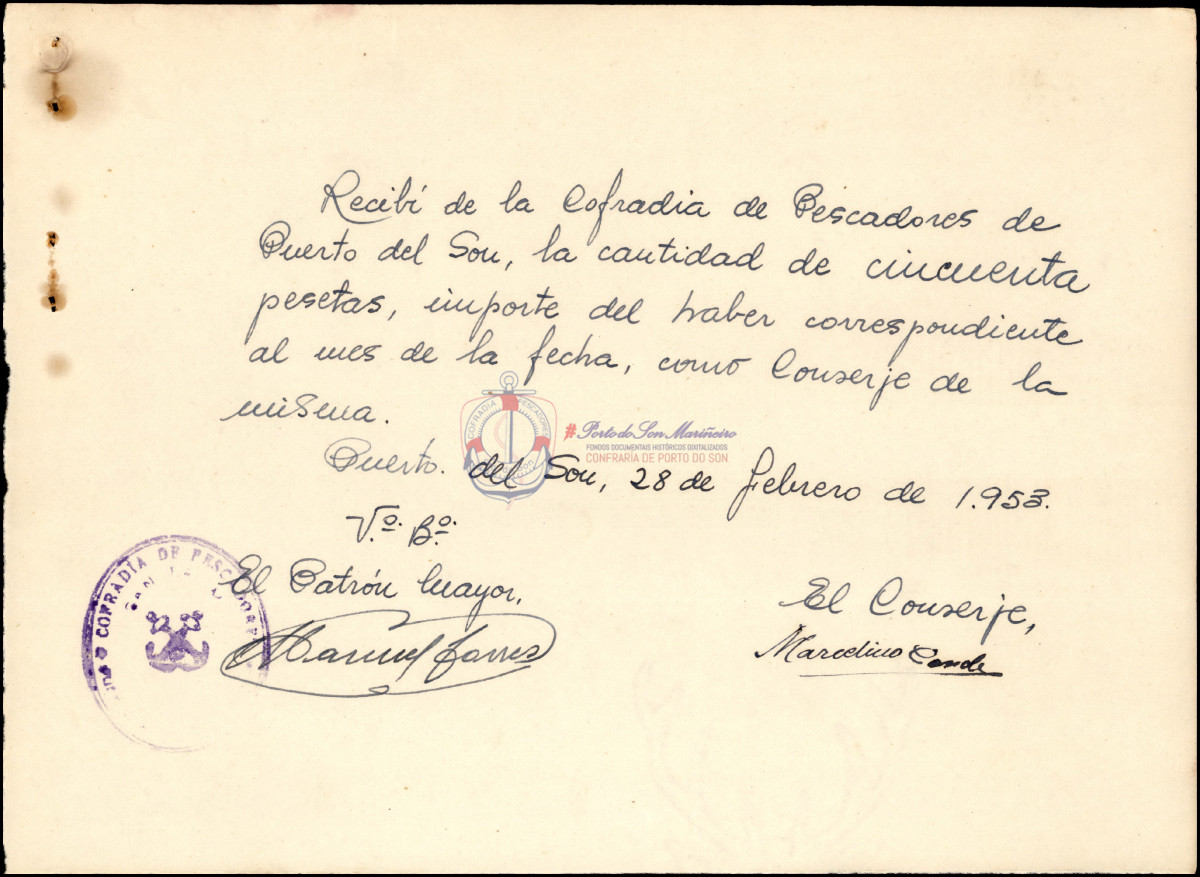 Recibí de la Cofradia de Pescadores de
Puerto del Son, la cantidad de cincuenta
pesetas, importe del haber correspondiente
al mes de la fecha, como Conserje de la
misma.
COFRADIA PESCADORES
#Porto do Son Mariñeiro
FONDOS DOCUMENTAIS HISTÓRICOS DIXITALIZADOS
CONFRARÍA DE PORTO DO SON
Puerto. del Son, 28 de febrero de 1.953.
V.º B.º
El Patrón Mayor,
COFRADIA DE PESCADORES
Manuel Torres
El Conserje,
Marcelino Conde